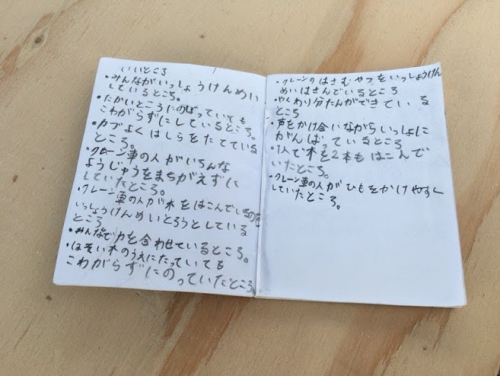 いいところ
・みんながいっしょうけんめい
しているところ。
・たかいところにのぼっていても
こわがらずにしているところ。
・力づよくはしらをたてている
ところ。
・クレーン車の人がいろんな
ようじゅうをまちがえずに
していたところ。
・クレーン車の人が木をはこんでいるの
いっしょうけんめいとろうとしている
ところ
・みんなで力を合わせているところ。
・ほそい木のうえにたっていても
こわがらずにのっていたところ
・クレーンのはさむやつをいっしょうけん
めいはさんでいるところ
・やくわり分たんができている
ところ
・声をかけ合いながらいっしょに
がんばっているところ
・1人で木を2本もはこんで
いたところ。
・クレーン車の人がひもをかけやすく
していたところ。